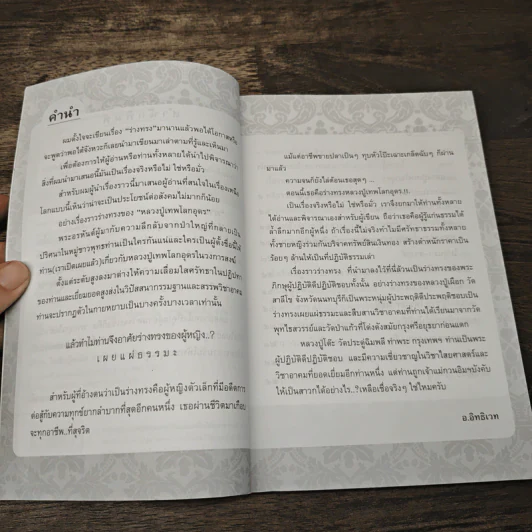 คำนำ
ผมตั้งใจจะเขียนเรื่อง "ร่างทรง" มานานแล้วพอได้โอกาส
จะพูดว่าพอได้จังหวะก็เลยนำมาเขียนมาเล่าตามที่รู้และเห็นมา
เพื่อต้องการให้ผู้อ่านหรือท่านทั้งหลายได้นำไปพิจารณาว่า
สิ่งที่ผมนำมาเสนอนี้มันเป็นเรื่องจริงหรือไม่ ใช่หรือมั่ว
สำหรับผมผู้นำเรื่องราวนี้มาเสนอผู้อ่านที่สนใจในเรื่องเหนือ
โลกแบบนี้เห็นว่าน่าจะเป็นประโยชน์ต่อสังคมไม่มากก็น้อย
อย่างเรื่องราวร่างทรงของ "หลวงปู่เทพโลกอุดร"
พระอรหันต์ผู้มากับความลึกลับจากป่าใหญ่ที่กลายเป็น
ปริศนาในหมู่ชาวพุทธท่านเป็นใครกันแน่และใครเป็นผู้ตั้งชื่อนี้ให้
ท่าน(เราเปิดเผยแล้ว)เกี่ยวกับหลวงปู่เทพโลกอุดรในวงการสงฆ์
ตั้งแต่ระดับสูงลงมาต่างให้ความเลื่อมใสศรัทธาในปฏิปทา
ของท่านและเยี่ยมยอดสูงส่งในวิปัสสนากรรมฐานและสรรพวิชาอาคม
ท่านจะปรากฏตัวในกายหยาบเป็นบางครั้งบางเวลาเท่านั้น
แล้วทำไมท่านจึงอาศัยร่างทรงของผู้หญิง..?
เ ผ ย แ ผ่ ธ ร ร ม ะ
สำหรับผู้ที่อ้างตนว่าเป็นร่างทรงคือผู้หญิงตัวเล็กที่มีอดีตการ
ต่อสู้กับความทุกข์ยากลำบากที่สุดอีกคนหนึ่ง เธอผ่านชีวิตมาเกือบ
จะทุกอาชีพ..ที่สุจริต
แม้แต่อาชีพขายปลาเป็นๆ ทุบหัวโป๊ะเลาะเกล็ดผับๆ ก็ผ่าน
มาแล้ว
ความจนก็ยังไล่ต้อนเธอสุดๆ
ตอนนี้เธอคือร่างทรงหลวงปู่เทพโลกอุดร.!!
เป็นเรื่องจริงหรือไม่ ใช่หรือมั่ว เราจึงยกมาให้ท่านทั้งหลาย
ได้อ่านและพิจารณาเองสำหรับผู้เขียน ถือว่าเธอคือผู้รู้แก่นธรรมได้
ล้ำลึกมากอีกผู้หนึ่ง ถ้าเรื่องนี้ไม่จริงทำไมมีศรัทธาธรรมทั้งหลาย
ทั้งชายหญิงร่วมกันบริจาคทรัพย์สินเงินทอง สร้างตำหนักราคาเป็น
ร้อยๆ ล้านให้เป็นที่ปฏิบัติธรรมเล่า
เรื่องราวร่างทรง ที่นำมาลงไว้ที่นี่ล้วนเป็นร่างทรงของพระ
ภิกษุผู้ปฏิบัติดีปฏิบัติชอบทั้งนั้น อย่างร่างทรงของหลวงปู่เผือก วัด
สาลีโข จังหวัดนนทบุรีก็เป็นพระหนุ่มผู้ประพฤติดีประพฤติชอบเป็น
ร่างทรงเผยแผ่ธรรมะและสืบสานวิชาอาคมที่ท่านได้เรียนมาจากวัด
พุทไธสวรรย์และวัดป่าแก้วที่โด่งดังสมัยกรุงศรีอยุธยาก่อนแตก
หลวงปู่โต๊ะ วัดประดู่ฉิมพลี ท่าพระ กรุงเทพฯ ท่านเป็นพระ
ผู้ปฏิบัติดีปฏิบัติชอบ และมีความเชี่ยวชาญในวิชาไสยศาสตร์และ
วิชาอาคมที่ยอดเยี่ยมอีกท่านหนึ่ง แต่ท่านถูกเจ้าแม่กวนอิมฯบังคับ
ให้เป็นสาวกได้อย่างไร..?เหลือเชื่อจริงๆ ใช่ไหมครับ
อ.อิทธิเวท